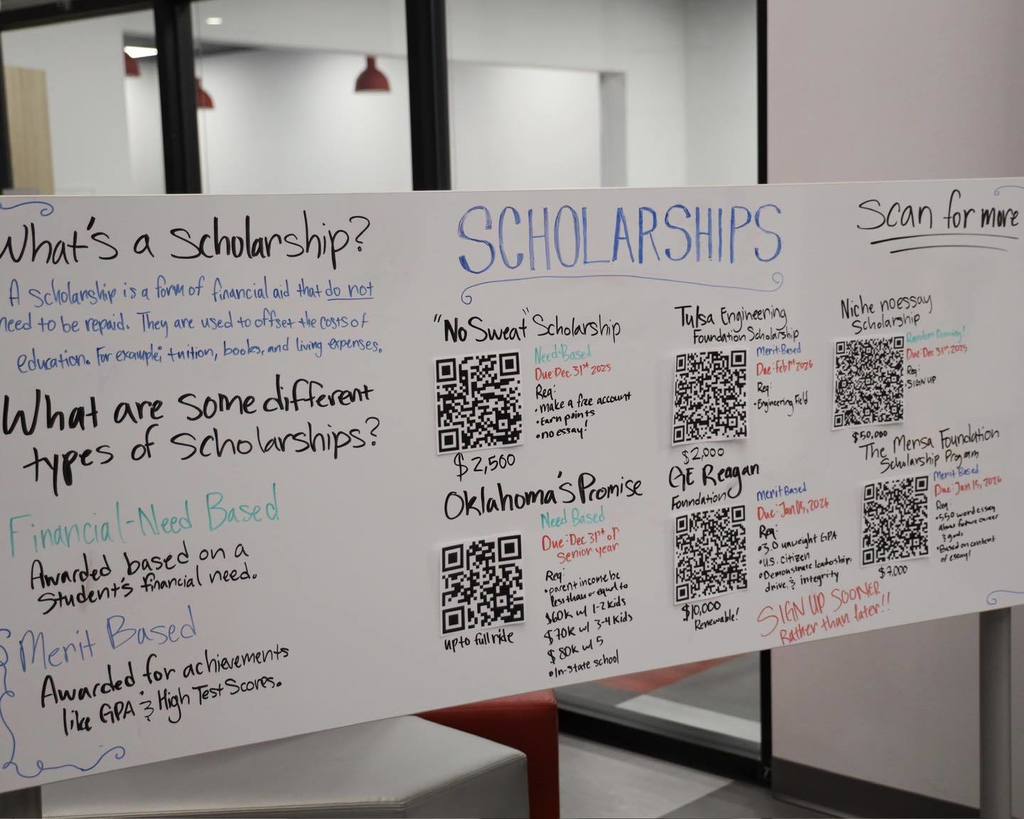 What's a scholarship?
A scholarship is a form of financial aid that do not
need to be repaid. They are used to offset the costs of
education. For example; tuition, books, and living expenses.
What are some different
types of scholarships?
Financial-Need Based
Awarded based on a
student's financial need.
Merit Based
Awarded for achievements
like GPA & High Test Scores.
SCHOLARSHIPS
Scan for more
"No Sweat" Scholarship
Need Based
Due: Dec 31st 2025
Req:
• make a free account
• Earn points
• no essay!
$2,500
Tulsa Engineering
Foundation Scholarship
Merit-Based
Due: Feb 1st 2026
Req:
• Engineering Field
$2,000
Niche no essay
Scholarship
Random Drawing!
Due: Dec 31st 2025
Req:
• SIGN UP
$50,000
Oklahoma's Promise
Need Based
Due: Dec 31st of
Senior year
Req:
• parent income be
less than or equal to
$60K w/ 1-2 kids
$70K w/ 3-4 kids
$80K w/ 5
• In-state school
up to full ride
GE Reagan
Foundation
Merit Based
Due: Jan 05, 2026
Req:
• 3.0 unweight GPA
• U.S. citizen
• Demonstrate leadership,
drive, & integrity
$10,000
Renewable!
The Mensa Foundation
Scholarship Program
Merit Based
Due: Jan 15, 2026
Req
• 550 word essay
about future career
& goals
• Based on content
of essay!
$7,000
SIGN UP SOONER
Rather than later!!